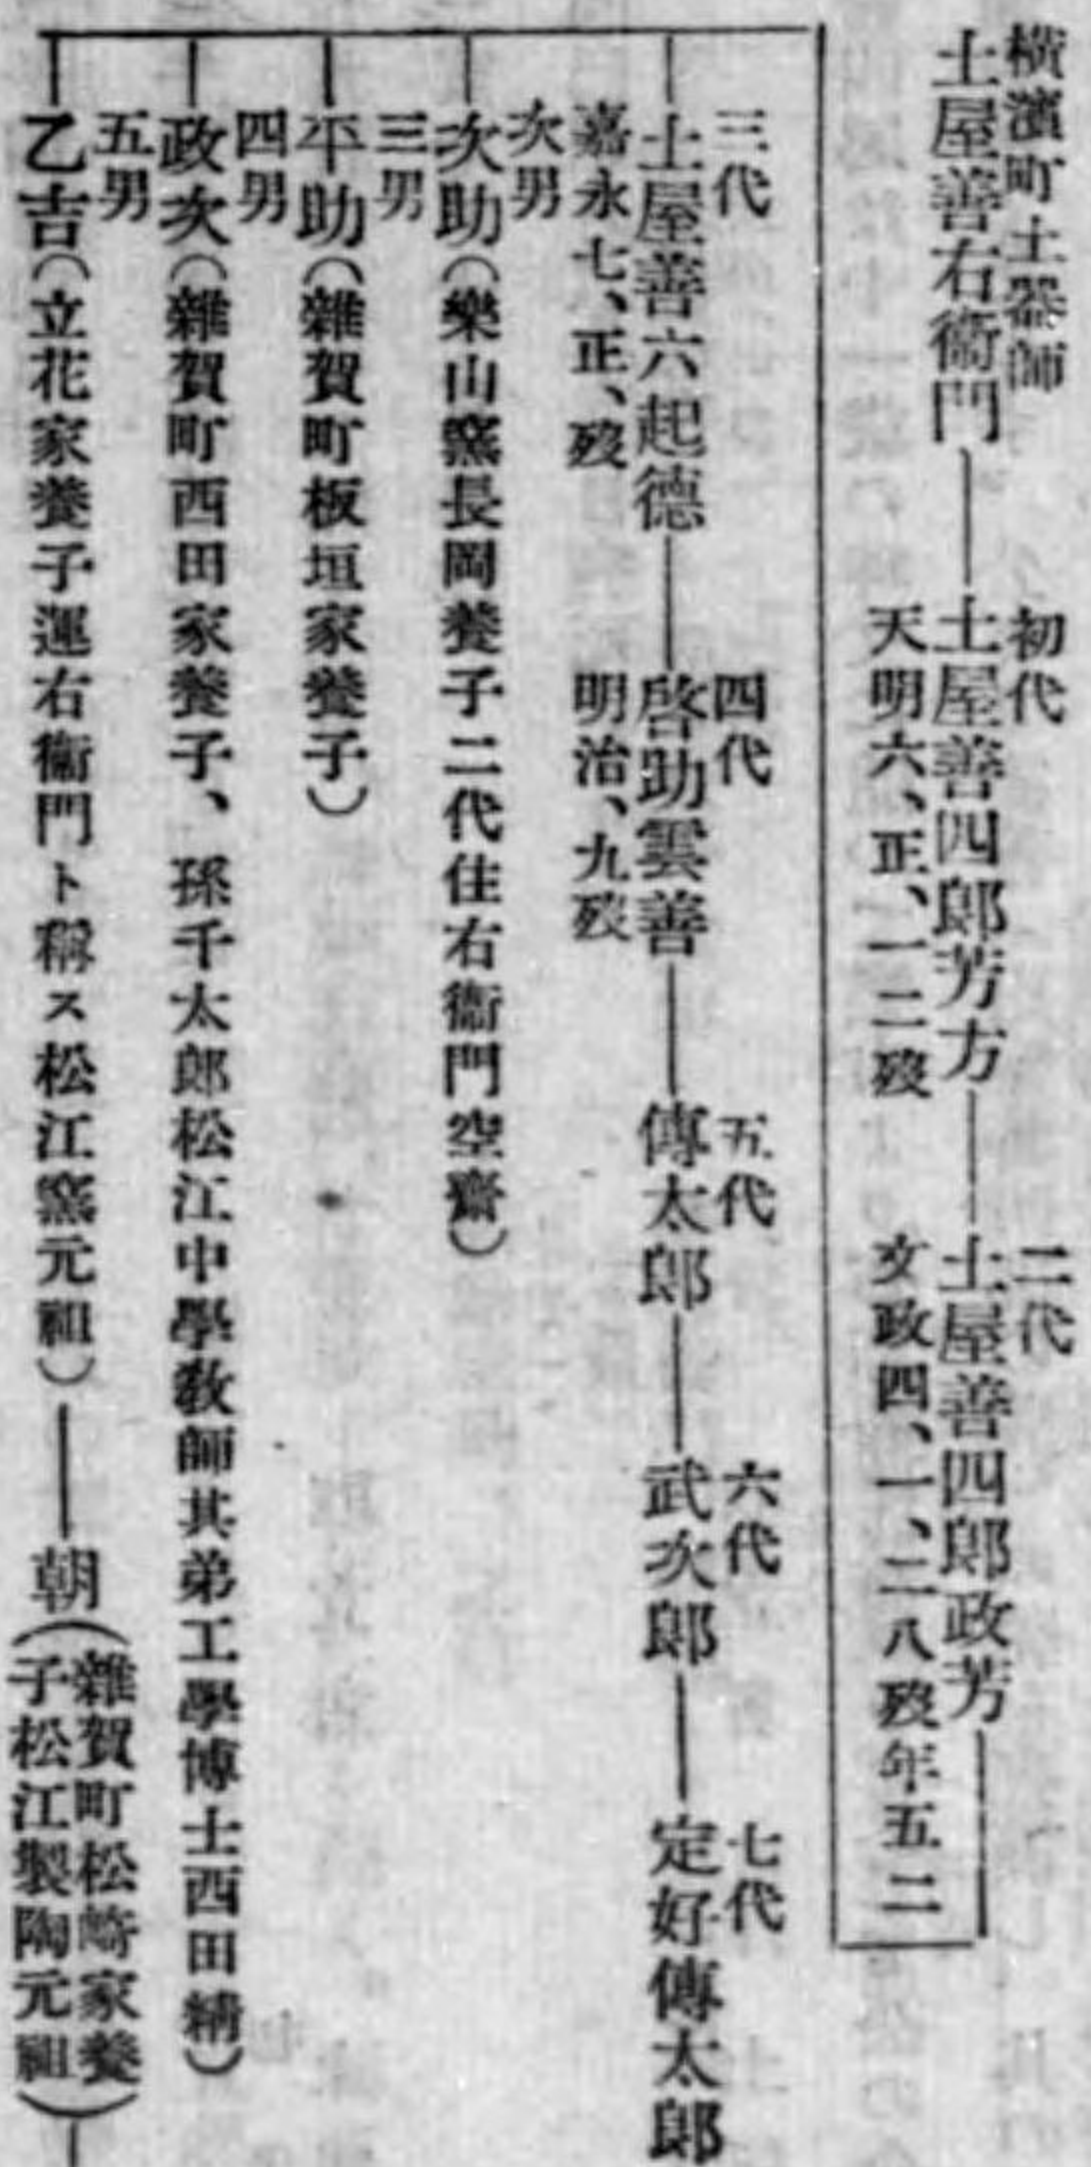 橫濱町土器師
土屋善右衞門
初代
土屋善四郞芳方
天明六、正、一二歿
二代
土屋善四郞政芳
文政四、一、二八歿年五二
三代
土屋善六起德
嘉永七、正、歿
四代
啓助雲善
明治、九歿
五代
傳太郞
六代
武次郞
七代
定好傳太郞
次男
次助(樂山窯長岡養子二代住右衞門空齋)
三男
平助(雜賀町板垣家養子)
四男
政次(雜賀町西田家養子、孫千太郞松江中學敎師其弟工學博士西田精)
五男
乙吉(立花家養子運右衞門ト稱ス松江窯元祖)
朝(雜賀町松崎家養
子松江製陶元祖)